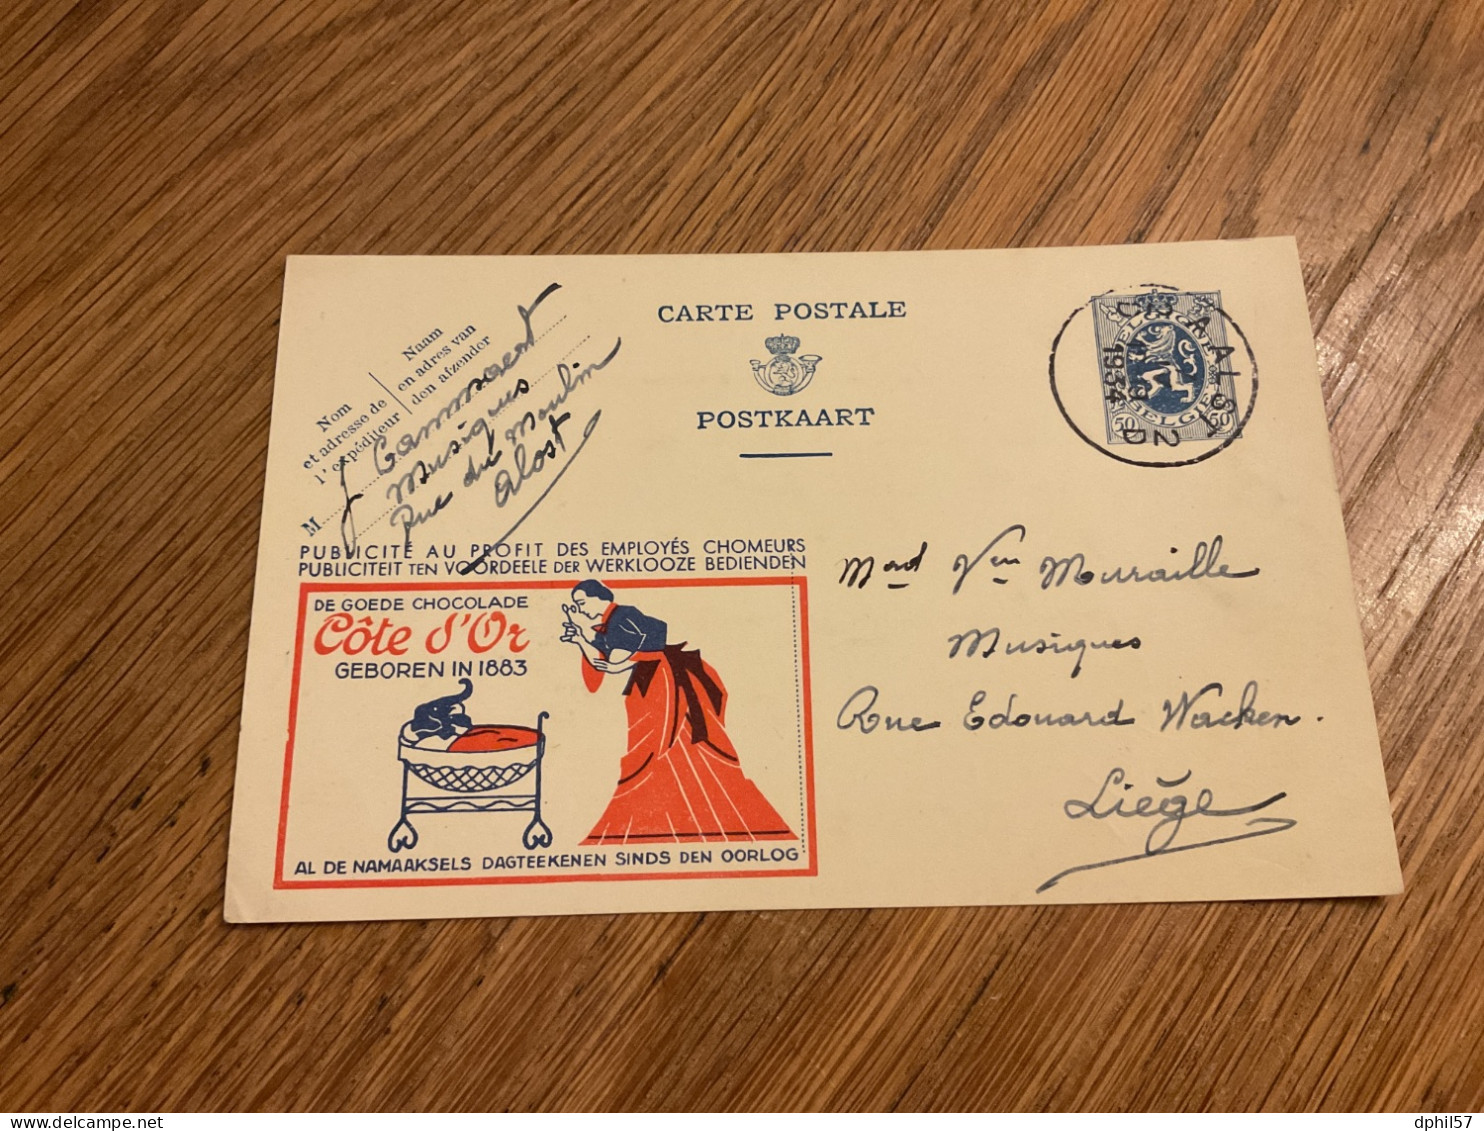 CARTE POSTALE
POSTKAART
Nom
et adresse de
l'expéditeur
Naam
en adres van
den afzender
M
J Cammaert
Musiques
Rue du Moulin
Alost
AALST
1934
2
D
BELGIQUE
BELGIË
50
50
PUBLICITÉ AU PROFIT DES EMPLOYÉS CHOMEURS
PUBLICITEIT TEN VOORDEELE DER WERKLOOZE BEDIENDEN
DE GOEDE CHOCOLADE
Côte d'Or
GEBOREN IN 1883
AL DE NAMAAKSELS DAGTEEKENEN SINDS DEN OORLOG
Mard Vve Mouraille
Musiques
Rue Edouard Wacken.
Liège
dphil57